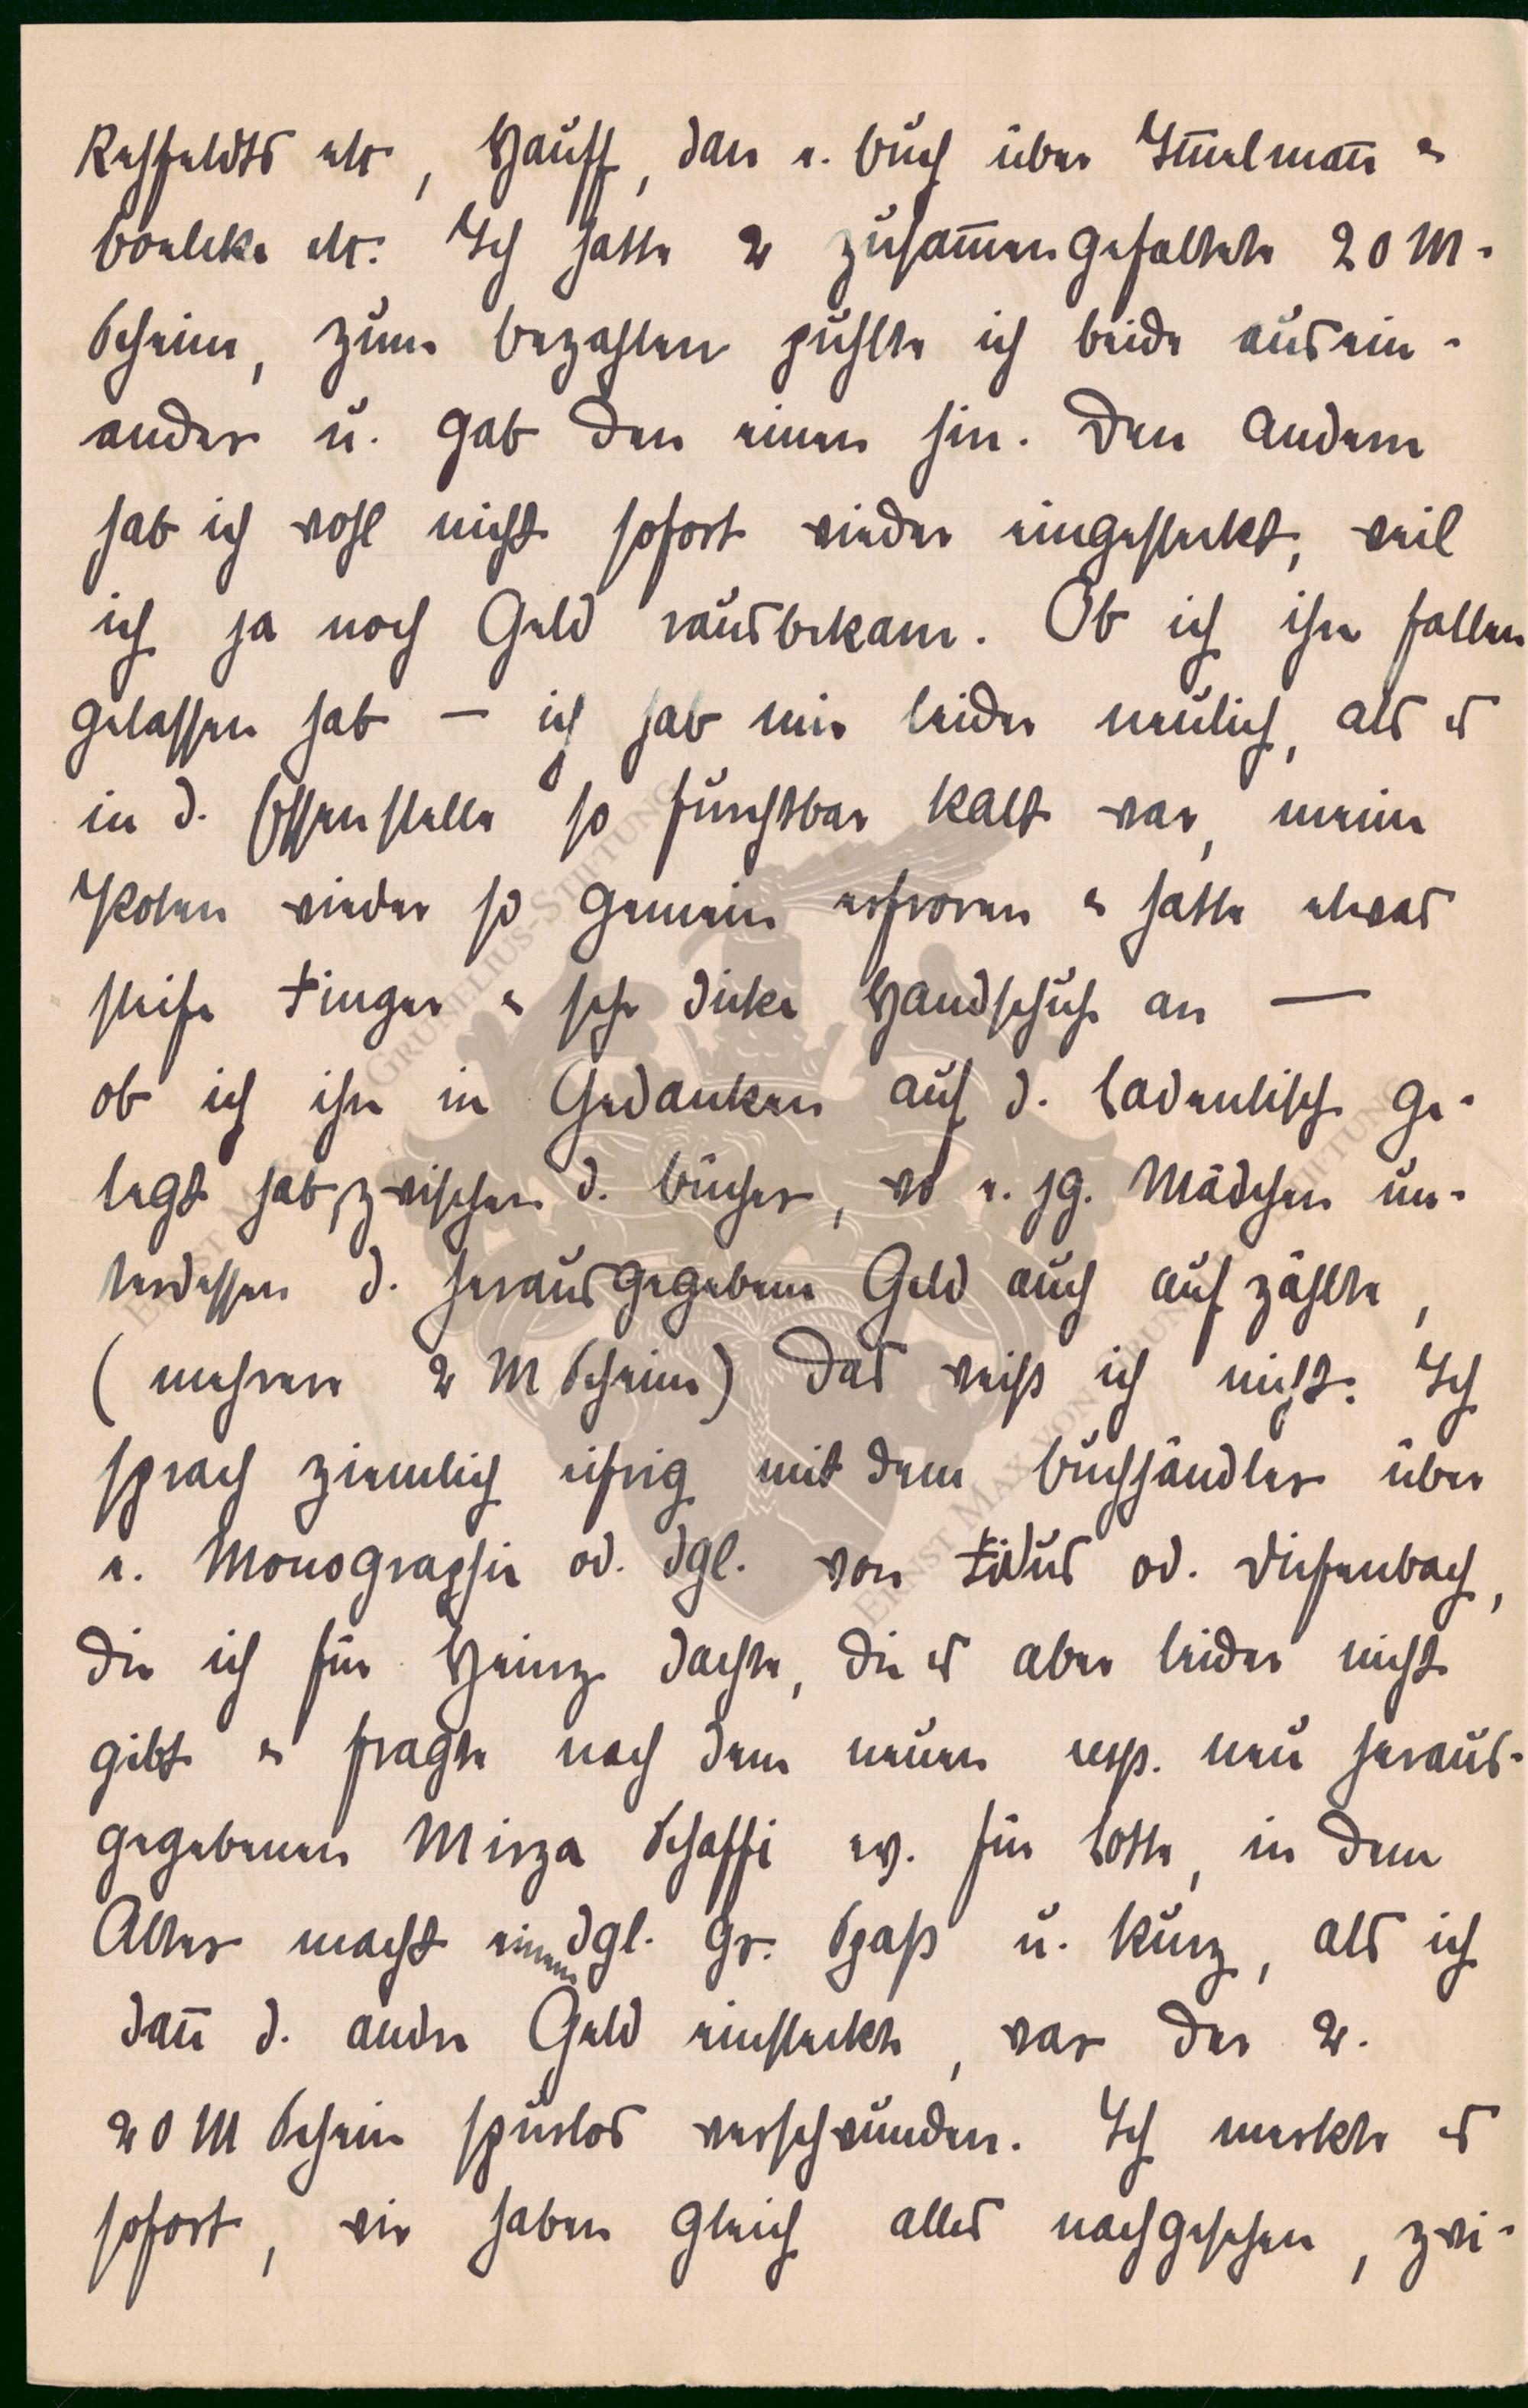 Rehfeldts etc, Hauff, dan e. Buch über Im̄elman̄ &
Boelcke etc. Ich hatte 2 zusam̄engefaltete 20 M-
Scheine, zum Bezahlen fühlte ich beide ausein-
ander u. gab den einen hin. Den andern
hab ich wohl nicht sofort wieder eingesteckt, weil
ich ja noch Geld rausbekam. Ob ich ihn fallen
gelassen hab — ich hab mir leider neulich, als es
in d. Essenstelle so furchtbar kalt war, meine
Pfoten wieder so gemein erfroren & hatte etwas
steife Finger & sehr dicke Handschuh an —
ob ich ihn in Gedanken auf d. Ladentisch ge-
legt hab, zwischen d. Bücher, wo e. jg. Mädchen un-
terdessen d. herausgegebene Geld auch aufzählte,
(mehrere 2 M Scheine) das weiß ich nicht. Ich
sprach ziemlich eifrig mit dem Buchhändler über
e. Monographie od. dgl. von Fidus od. Diefenbach,
die ich für Heinz dachte, die es aber leider nicht
gibt & fragte nach dem neuen resp. neu heraus-
gegebenen Mirza Schaffi ev. für Lotte, in dem
Alter macht einem dgl. gr. Spaß u. kurz, als ich
dan̄ d. andre Geld einsteckte, war der 2.
20 M Schein spurlos verschwunden. Ich merkte es
sofort, wir haben gleich alles nachgesehen, zwi-
ERNST MAX VON GRUNELIUS-STIFTUNG
ERNST MAX VON GRUNELIUS-STIFTUNG